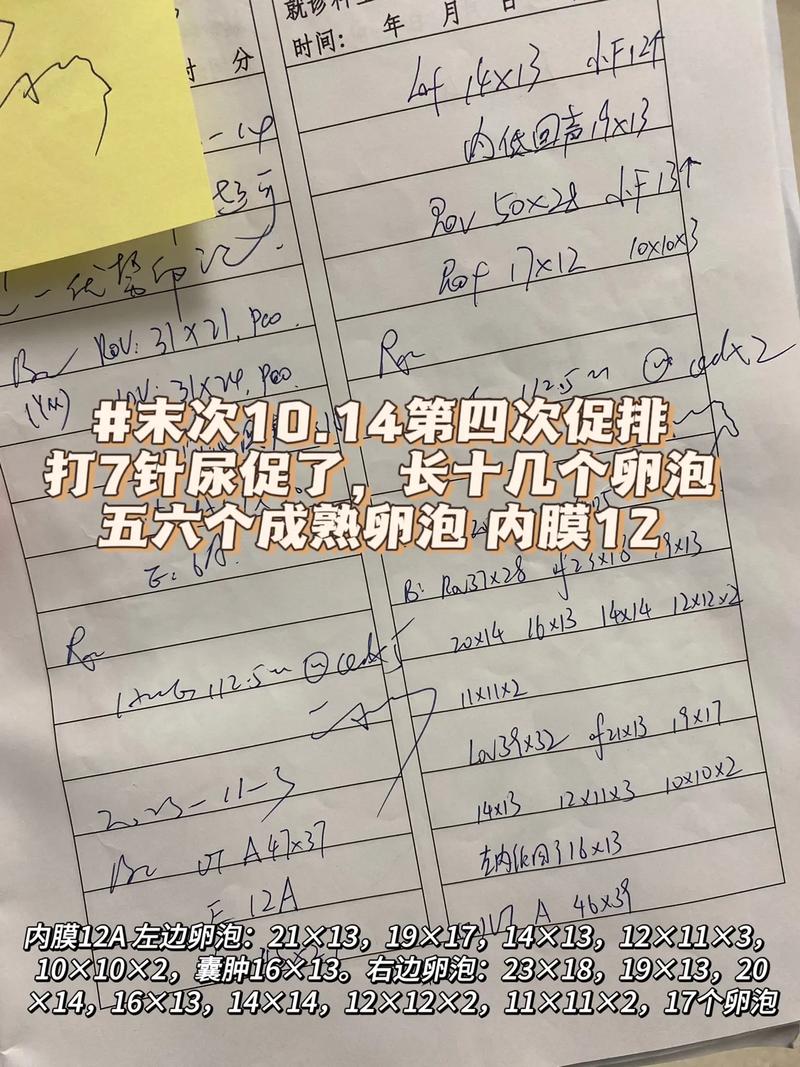 就诊科
时间： 年 月 日
时 分
Lof 14×13 小F12↑
内低回声19×13
Rov 50×28 小F13↑
Rof 17×12 10×10×3
ROV: 31×21, PCO.
LOV: 31×24, PCO
112.5u qd×2
#末次10.14第四次促排
打7针尿促了，长十几个卵泡
五六个成熟卵泡 内膜12
B: Rov37×28 of23×18 19×13
20×14 16×13 14×14 12×12×2
11×11×2
HMG 112.5u qd×5
Lov39×32 of21×13 19×17
2023-11-3
14×13 12×11×3 10×10×2
UT A47×37
左内低回声16×13
E 12A
UT A 46×39
内膜12A 左边卵泡：21×13，19×17，14×13，12×11×3，
10×10×2，囊肿16×13。右边卵泡：23×18，19×13，20
×14，16×13，14×14，12×12×2，11×11×2，17个卵泡